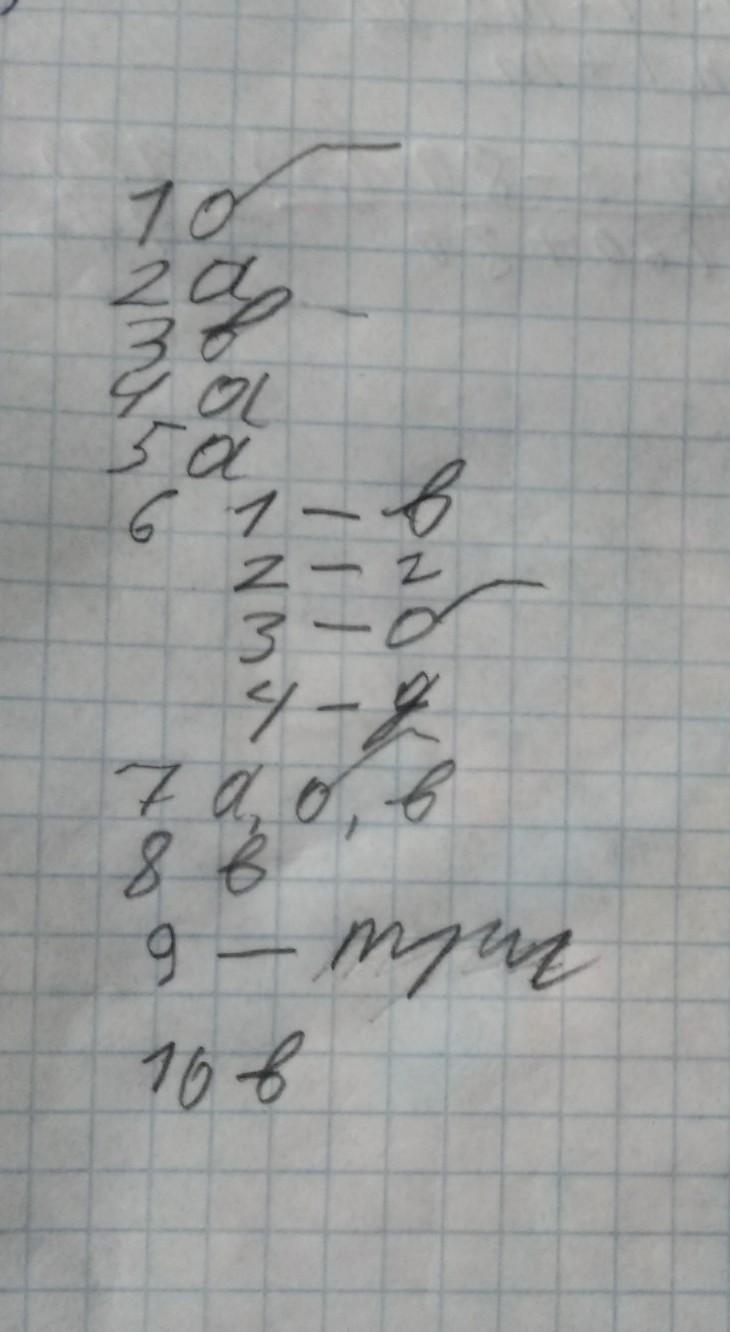 1 б
2 а
3 в
4 а
5 а
6 1 – в
2 – г
3 – б
4 – д
7 а, б, в
8 в
9 – три
10 в